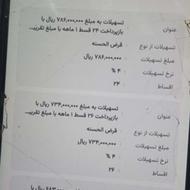 تسهیلات به مبلغ ۷۸۶,۰۰۰,۰۰۰ ریال با
عنوان
بازپرداخت ۲۴ قسط ۱ ماهه با مبلغ تقریب...
تسهیلات از نوع
قرض الحسنه
مبلغ تسهیلات
۷۸۶,۰۰۰,۰۰۰ ریال
نرخ تسهیلات
۴ %
اقساط
۲۴
تسهیلات به مبلغ ۷۳۴,۰۰۰,۰۰۰ ریال با
عنوان
بازپرداخت ۲۶ قسط ۱ ماهه با مبلغ تقریب...
تسهیلات از نوع
قرض الحسنه
مبلغ تسهیلات
۷۳۴,۰۰۰,۰۰۰ ریال
نرخ تسهیلات
۴ %
اقساط
۲۶
ریال با